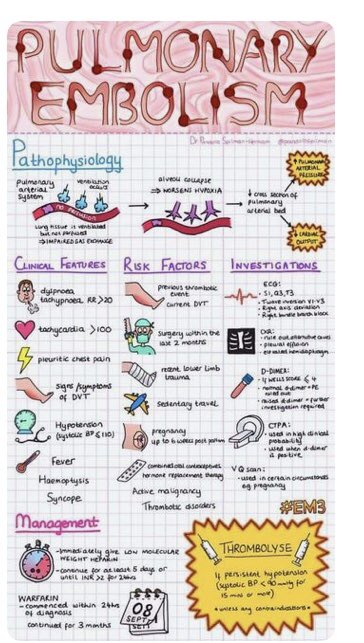 PULMONARY
EMBOLISM
Pathophysiology
pulmonary
arterial
system
ventilation
occurs
no perfusion
lung tissue is ventilated
but not perfused
⇒ IMPAIRED GAS EXCHANGE
alveoli collapse
⇒ WORSENS HYPOXIA
↓ cross section of
pulmonary
arterial bed
↑ PULMONARY
ARTERIAL
PRESSURE
↓ CARDIAC
OUTPUT
CLINICAL FEATURES
dyspnoea
tachypnoea RR >20
tachycardia >100
pleuritic chest pain
signs/symptoms
of DVT
Hypotension
(systolic BP ≤110)
Fever
Haemoptysis
Syncope
RISK FACTORS
previous thrombotic
event
current DVT
surgery within the
last 2 months
recent lower limb
trauma
sedentary travel
pregnancy
up to 6 weeks post partum
combined oral contraceptives
hormone replacement therapy
Active malignancy
Thrombotic disorders
INVESTIGATIONS
ECG:
• S1, Q3, T3
• T wave inversion V1-V3
• Right axis deviation
• Right bundle branch block
CXR:
• rule out alternative causes
• pleural effusion
• elevated hemidiaphragm
D-DIMER:
• if WELLS SCORE ≤ 4
• normal d-dimer = PE
ruled out
• raised d-dimer = further
investigation required
CTPA:
• used in high clinical
probability
• used when d-dimer
is positive
VQ scan:
• used in certain circumstances
eg pregnancy
#EM3
Management
-immediately give LOW MOLECULAR
WEIGHT HEPARIN
-continue for at least 5 days or
until INR >2 for 24hrs
WARFARIN
- commenced within 24hrs
of diagnosis
continued for 3 months
08
SEPT
THROMBOLYSE
if persistent hypotension
(systolic BP <90mmHg for
15 mins or more)
*unless any contraindications*